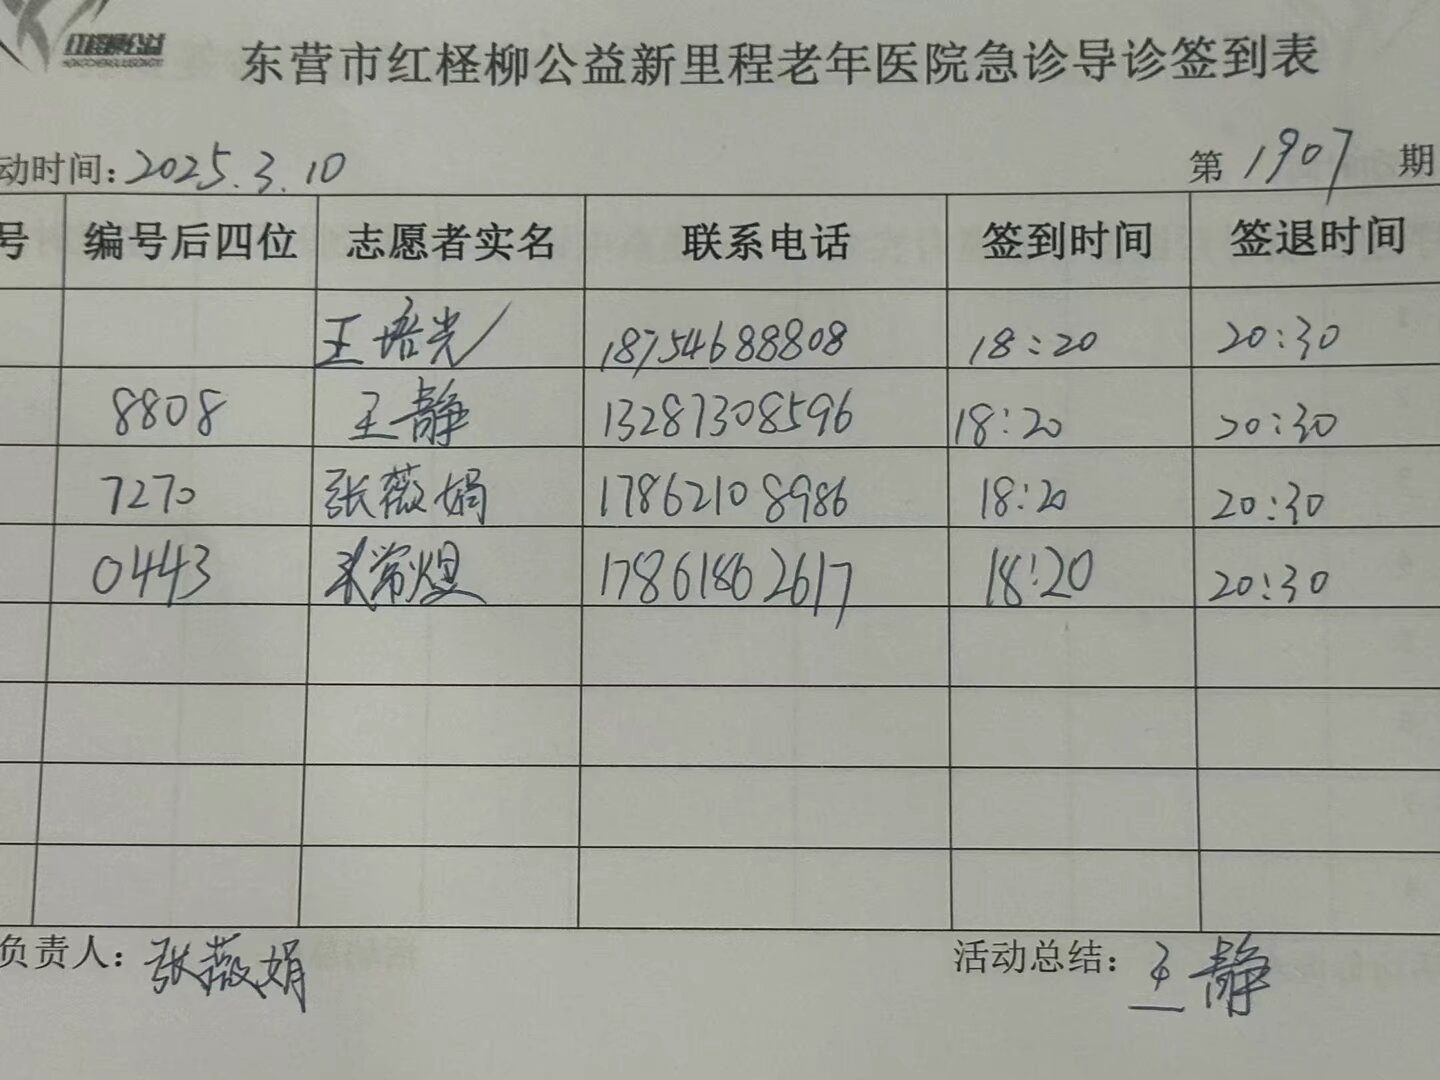 红柽柳公益
东营市红柽柳公益新里程老年医院急诊导诊签到表
动时间：2025.3.10 第 1907 期
号 编号后四位 志愿者实名 联系电话 签到时间 签退时间
王培光 18754688808 18:20 20:30
8808 王静 13287308596 18:20 20:30
7270 张薇娟 17862108986 18:20 20:30
0443 17861862617 18:20 20:30
负责人：张薇娟 活动总结：王静